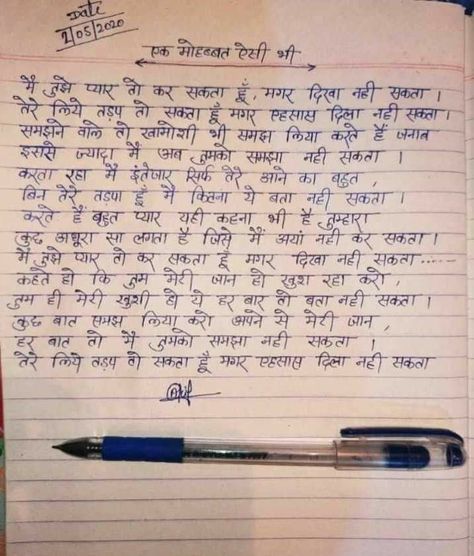 Date
2/05/2020
एक मोहब्बत ऐसी भी
मै तुझे प्यार तो कर सकता हूँ, मगर दिखा नही सकता ।
तेरे लिये तड़प तो सकता हूँ मगर एहसास दिला नही सकता ।
समझने वाले तो खामोशी भी समझ लिया करते हैं जनाब
इससे ज्यादा मैं अब तुमको समझा नही सकता ।
करता रहा मैं इंतेजार सिर्फ तेरे आने का बहुत ,
बिन तेरे तड़पा हूँ मै कितना ये बता नही सकता ।
करते हैं बहुत प्यार यही कहना भी है तुम्हारा
कुछ अधूरा सा लगता है जिसे मैं अयां नही कर सकता ।
मै तुझे प्यार तो कर सकता हूँ मगर दिखा नही सकता ......
कहते हो कि तुम मेरी जान हो खुश रहा करो ,
तुम ही मेरी खुशी हो ये हर बार तो बता नही सकता ।
कुछ बात समझ लिया करो अपने से मेरी जान ,
हर बात तो मैं तुमको समझा नही सकता ।
तेरे लिये तड़प तो सकता हूँ मगर एहसास दिला नही सकता